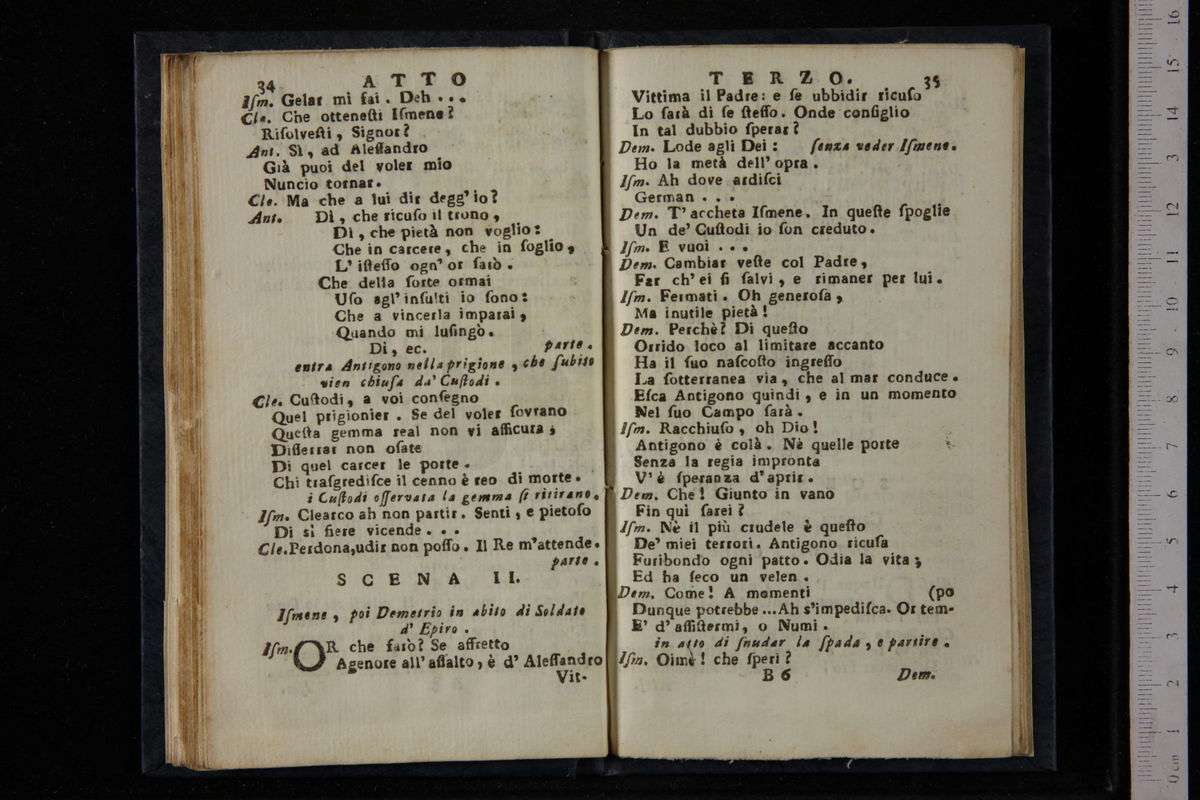 34 ATTO
Iſm. Gelar mi fai. Deh...
Cle. Che otteneſti Iſmene?
Riſolveſti, Signor?
Ant. Sì, ad Aleſſandro
Già puoi del voler mio
Nuncio tornar.
Cle. Ma che a lui dir degg' io?
Ant. Dì, che ricuſo il trono,
Dì, che pietà non voglio:
Che in carcere, che in ſoglio,
L' iſteſſo ogn' or ſarò.
Che della ſorte ormai
Uſo agl' inſulti io ſono:
Che a vincerla imparai,
Quando mi luſingò.
Di, ec. parte.
entra Antigono nella prigione, che ſubito
vien chiuſa da' Cuſtodi.
Cle. Cuſtodi, a voi conſegno
Quel prigionier. Se del voler ſovrano
Queſta gemma real non vi aſſicura,
Diſſerrar non oſate
Di quel carcer le porte.
Chi traſgrediſce il cenno è reo di morte.
i Cuſtodi oſſervata la gemma ſi ritirano.
Iſm. Clearco ah non partir. Senti, e pietoſo
Di sì fiere vicende...
Cle. Perdona, udir non poſſo. Il Re m'attende.
parte.
SCENA II.
Iſmene, poi Demetrio in abito di Soldato
d' Epiro.
Iſm. OR che farò? Se affretto
Agenore all' aſſalto, è d' Aleſſandro
Vit-
TERZO. 35
Vittima il Padre: e ſe ubbidir ricuſo
Lo ſarà di ſe ſteſſo. Onde conſiglio
In tal dubbio ſperar?
Dem. Lode agli Dei: ſenza veder Iſmene.
Ho la metà dell' opra.
Iſm. Ah dove ardiſci
German...
Dem. T' accheta Iſmene. In queſte ſpoglie
Un de' Cuſtodi io ſon creduto.
Iſm. E vuoi...
Dem. Cambiar veſte col Padre,
Far ch' ei ſi ſalvi, e rimaner per lui.
Iſm. Fermati. Oh generoſa,
Ma inutile pietà!
Dem. Perchè? Di queſto
Orrido loco al limitare accanto
Ha il ſuo naſcoſto ingreſſo
La ſotterranea via, che al mar conduce.
Eſca Antigono quindi, e in un momento
Nel ſuo Campo ſarà.
Iſm. Racchiuſo, oh Dio!
Antigono è colà. Nè quelle porte
Senza la regia impronta
V' è ſperanza d' aprir.
Dem. Che! Giunto in vano
Fin quì ſarei?
Iſm. Nè il più crudele è queſto
De' miei terrori. Antigono ricuſa
Furibondo ogni patto. Odia la vita;
Ed ha ſeco un velen.
Dem. Come! A momenti (po
Dunque potrebbe... Ah s'impediſca. Or tem-
E' d' aſſiſtermi, o Numi.
in atto di ſnudar la ſpada, e partire.
Iſm. Oimè! che ſperi?
B 6 Dem.
16
15
14
13
12
11
10
9
8
7
6
5
4
3
2
1
0 cm